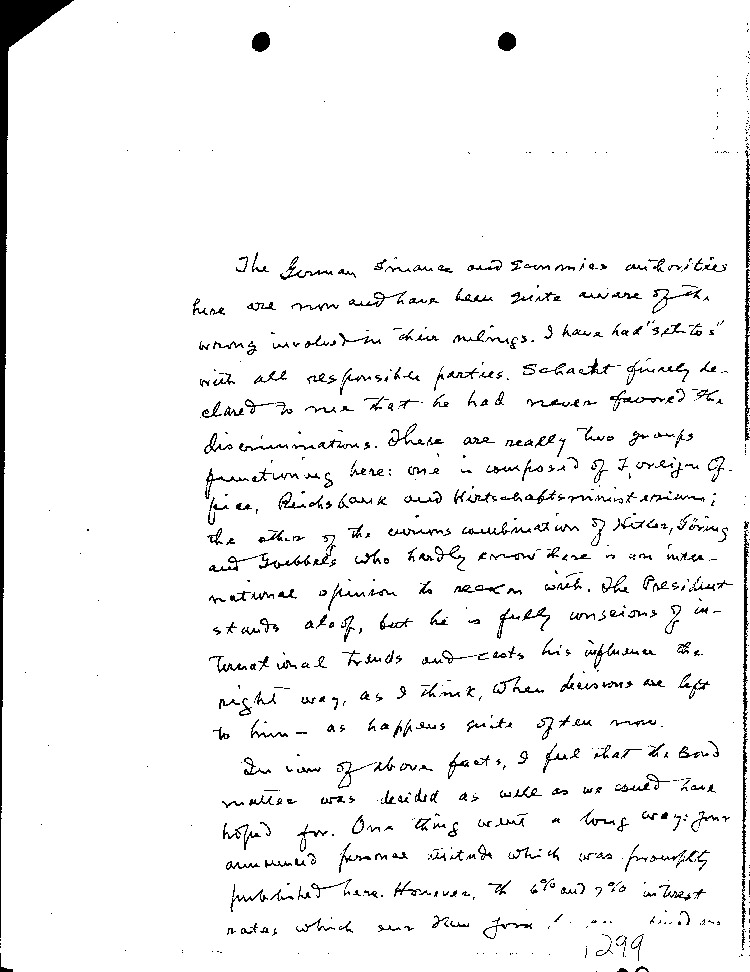 The German Finance and Economics authorities
here are now and have been quite aware of the
wrong involved in their rulings. I have had "set-to's"
with all responsible parties. Schacht finally de-
clared to me that he had never favored the
discriminations. There are really two groups
functioning here: one is composed of Foreign Of-
fice, Reichsbank and Wirtschaftsministerium;
the other of the curious combination of Hitler, Göring
and Goebbels who hardly know there is an inter-
national opinion to reckon with. The President
stands aloof, but he is fully conscious of in-
ternational trends and casts his influence the
right way, as I think, when decisions are left
to him - as happens quite often now.
In view of above facts, I feel that the Bond
matter was decided as well as we could have
hoped for. One thing went a long way: your
announced personal attitude which was promptly
published here. However, the 6% and 7% interest
rates which our New York
1299